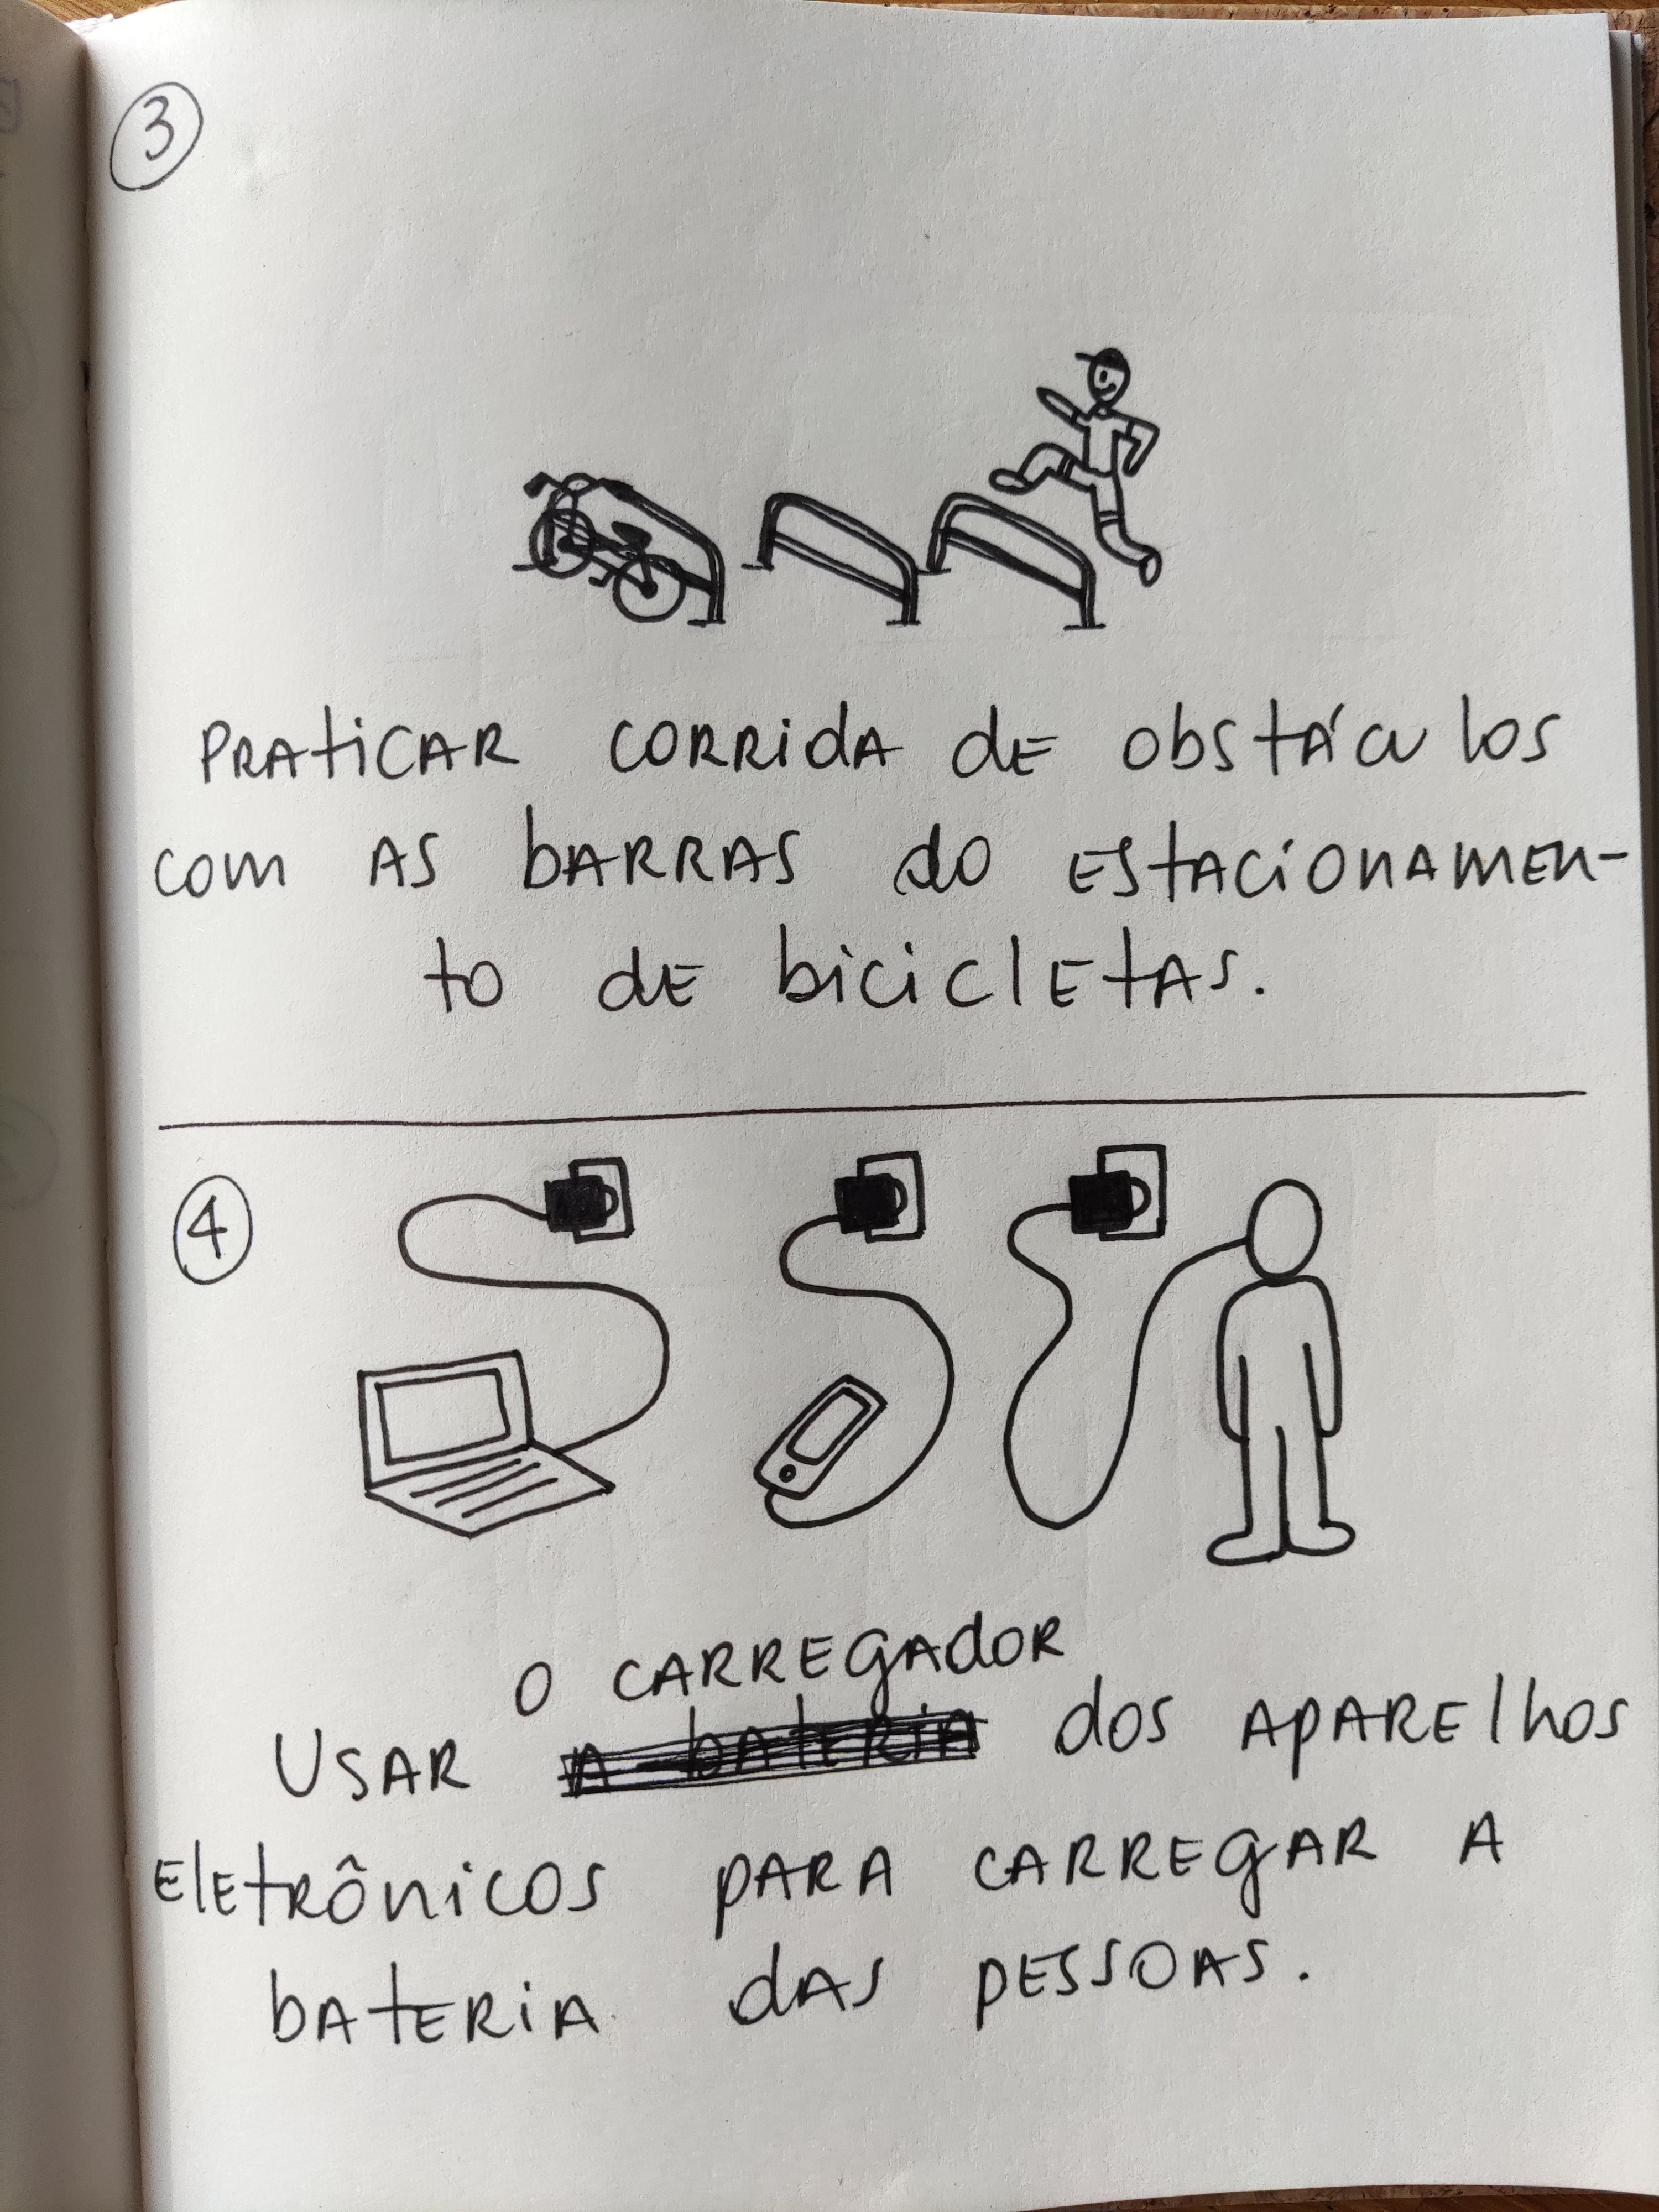 3
PRATICAR CORRIDA DE OBSTÁCULOS
COM AS BARRAS DO ESTACIONAMEN-
TO DE BICICLETAS.
4
O CARREGADOR
USAR a bateria DOS APARELHOS
ELETRÔNICOS PARA CARREGAR A
BATERIA DAS PESSOAS.